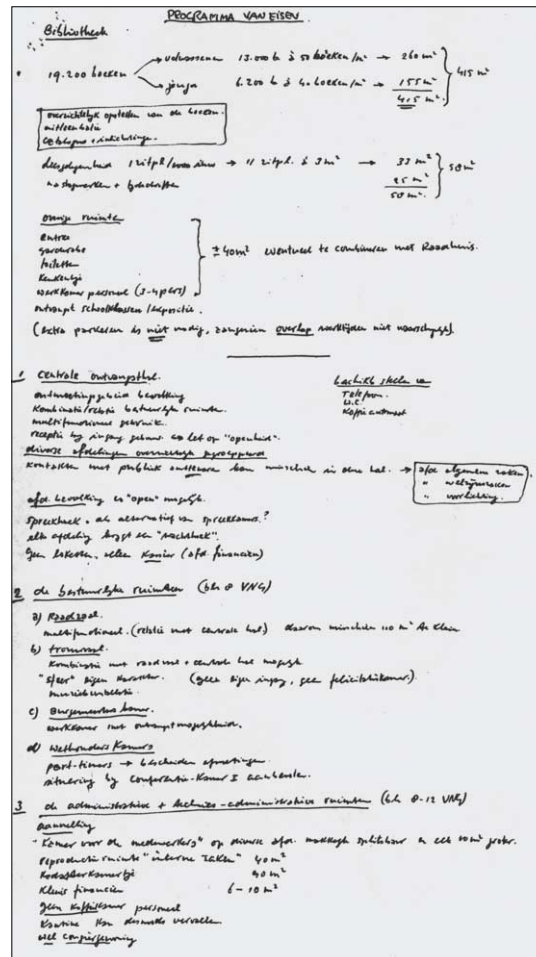 PROGRAMMA VAN EISEN
Bibliotheek
19.200 boeken
volwassenen 13.000 b à 50 boeken/m² → 260 m²
jeugd 6.200 b à 40 boeken/m² → 155 m²
415 m²
415 m²
overzichtelijk opstellen van de boeken.
uitleenbalie
catalogus + inlichtingen.
leesgelegenheid 1 zitpl/1000 inw → 11 zitpl. à 3 m² → 33 m²
naslagwerken + tijdschriften 25 m²
58 m²
58 m²
overige ruimte
entree
garderobe
toiletten
keukentje
werkkamer personeel (3-4 pers)
± 40 m² eventueel te combineren met Raadhuis.
ontvangst schoolklassen / expositie.
(extra parkeren is niet nodig, aangezien overlap werktijden niet waarschijnlijk).
1 Centrale ontvangsthal.
ontmoetingsplaats bevolking
Kombinatie/relatie bestuurlijke ruimten.
multifunctioneel gebruik.
receptie bij ingang gebouw let op "openheid".
beschikb stellen van
Telefoon.
W.C.
Koffieautomaat
diverse afdelingen overzichtelijk gegroepeerd
kontakten met publiek kan misschien in deze hal. →
afd algemene zaken.
" welzijnszaken
" voorlichting.
afd. bevolking zo "open" mogelijk.
spreekhoek. als alternatief van spreekkamer?
elke afdeling krijgt een
geen loketten. alleen Kassier (afd. financiën)
2 de bestuurlijke ruimten (blz 8 VNG)
a) Raadzaal.
multifunctioneel. (relatie met centrale hal) daarom misschien 110 m² te klein
b) trouwzaal.
Kombinatie met raadzaal + centrale hal mogelijk
"sfeer" eigen karakter. (geen eigen ingang, geen felicitatiekamer).
muziekinstallatie.
c) Burgemeesters kamer.
werkkamer met ontvangstmogelijkheid.
d) Wethouders Kamers
part-timers → bescheiden afmetingen.
situering bij conferentie-kamer I aanbevolen.
3 de administratieve + technies-administratieve ruimten (blz 8-12 VNG)
aanvulling
"Kamer voor de medewerkers" op diverse afd. makkelijk splitsbaar en 10 m² groter.
reproductie ruimte "interne zaken" 40 m²
Kadasterkamertje
Kluis financiën 6-10 m²
geen koffiekamer personeel
Kantine kan desnoods vervallen
wel conciergewoning